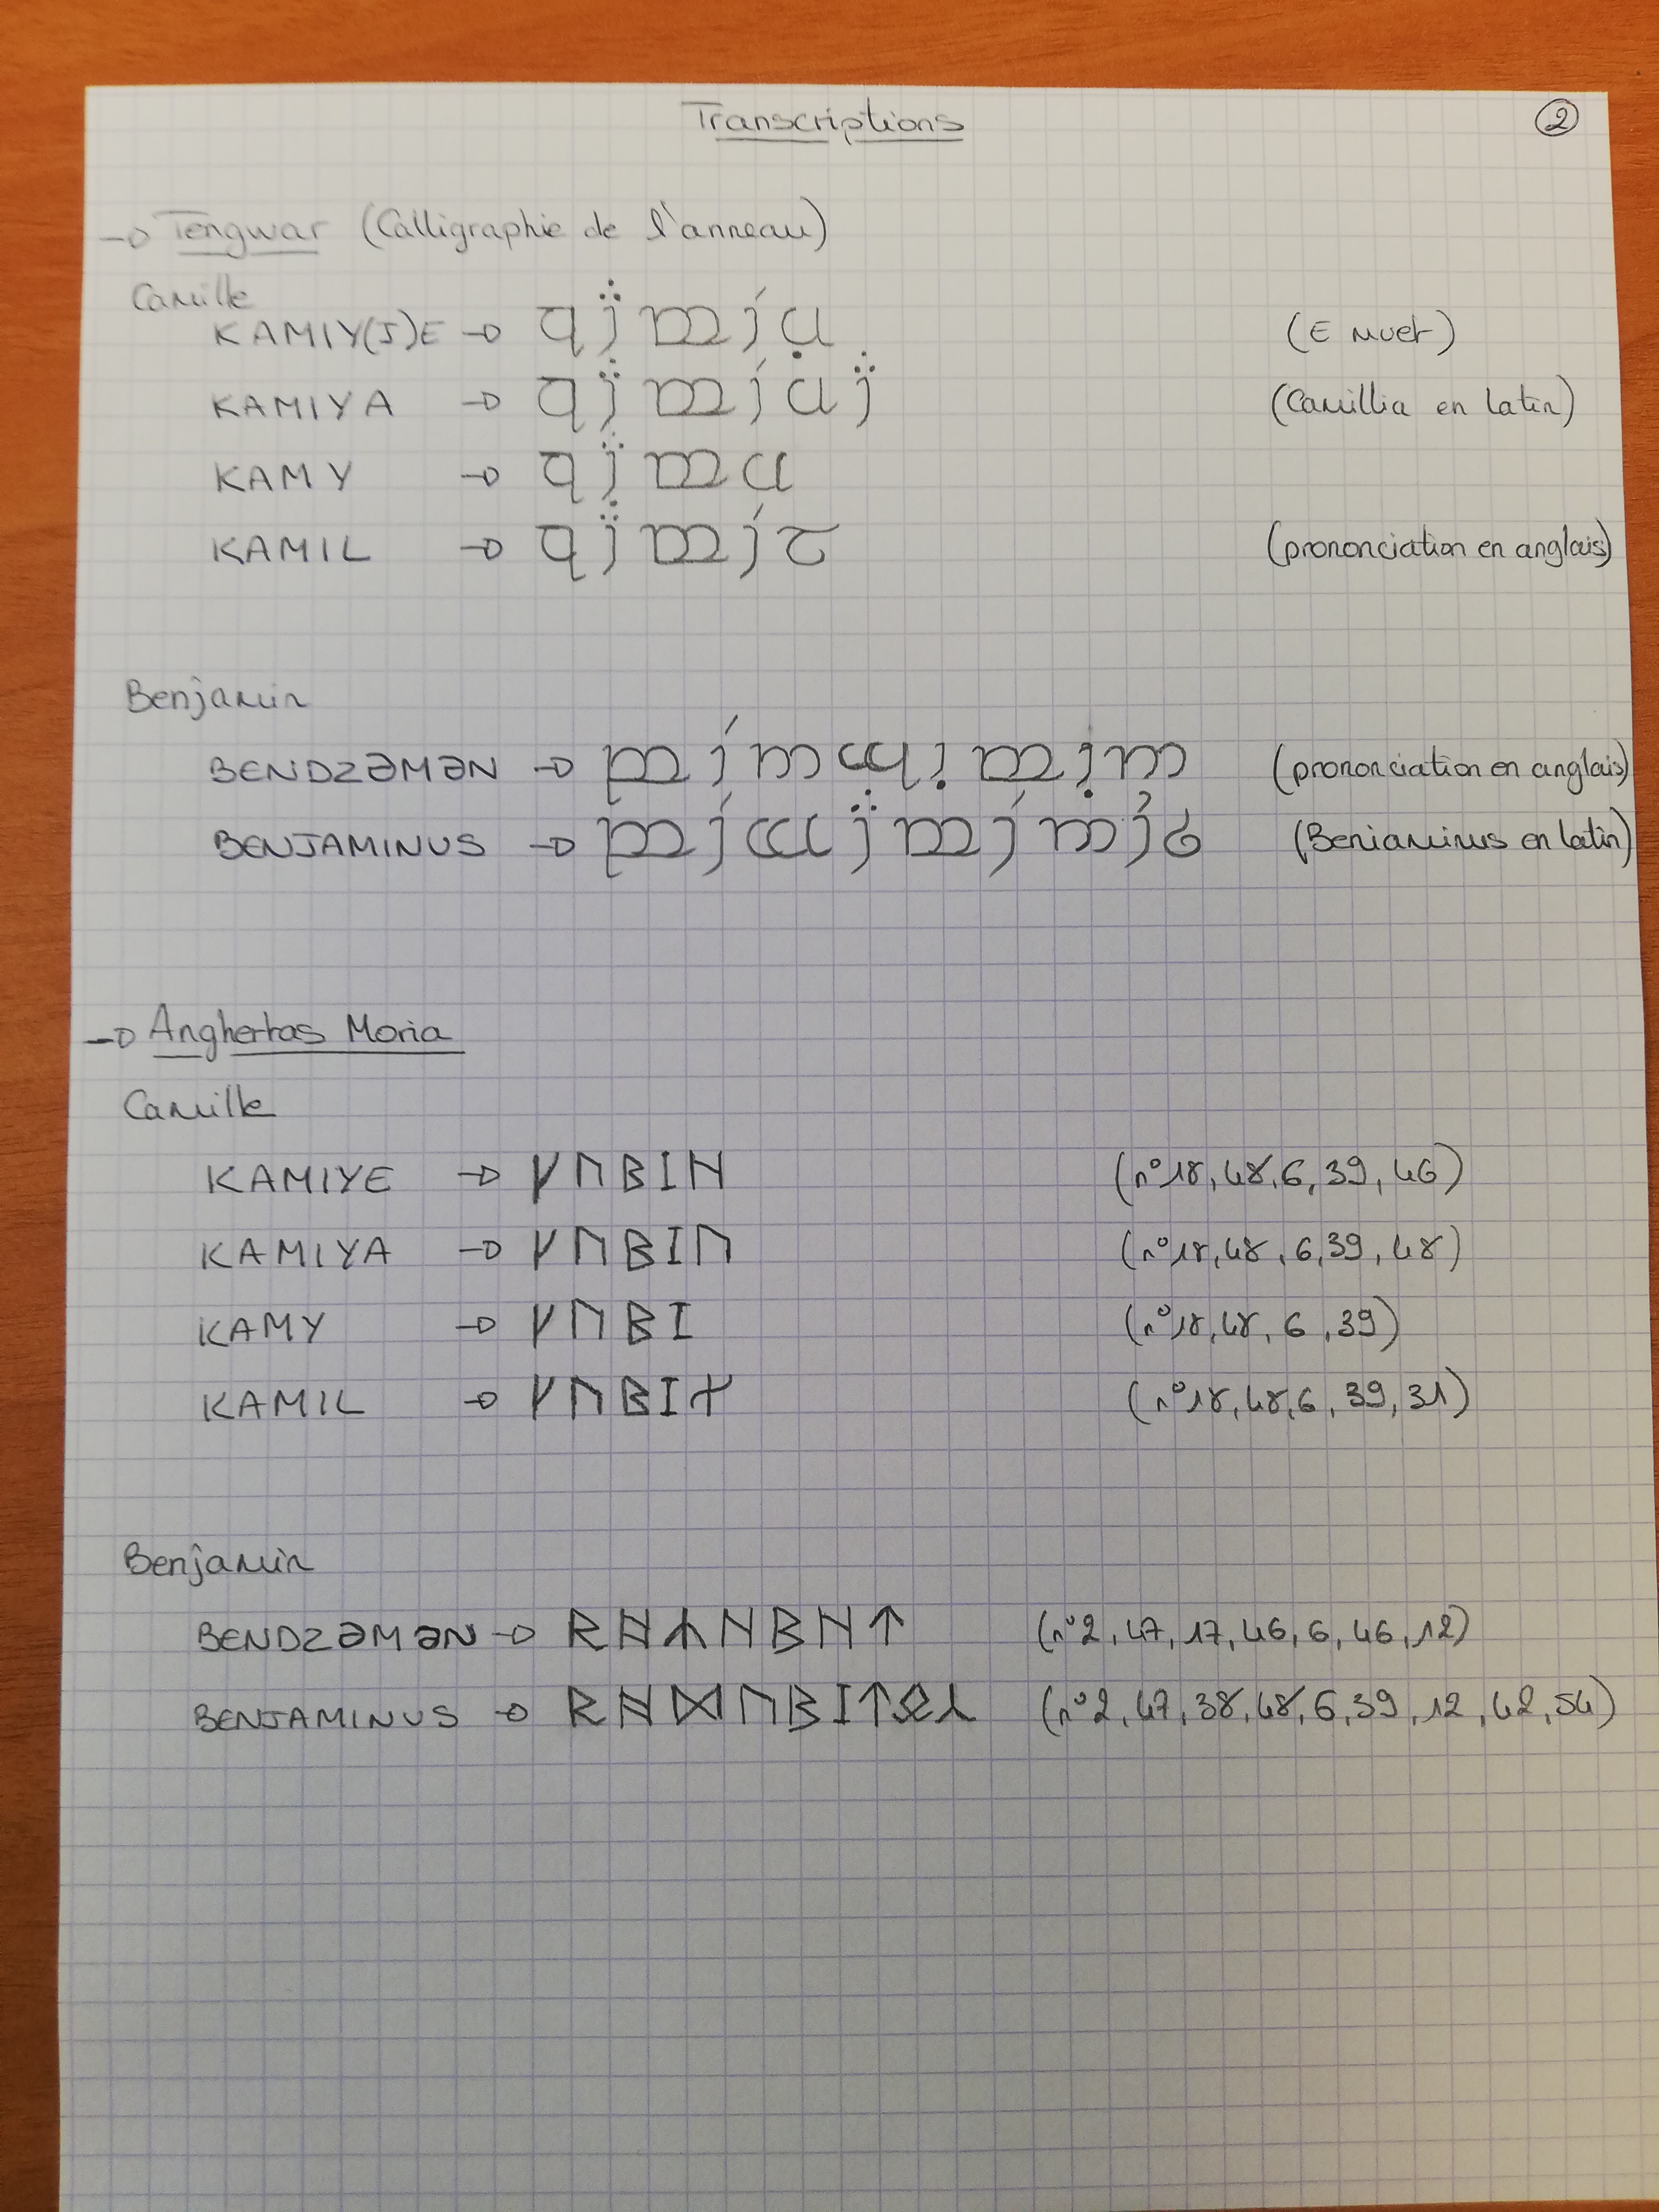 Transcriptions
②
→ Tengwar (Calligraphie de l'anneau)
Camille
KAMIY(J)E → (E muet)
KAMIYA → (Camillia en latin)
KAMY →
KAMIL → (prononciation en anglais)
Benjamin
BENDZƏMƏN → (prononciation en anglais)
BENJAMINUS → (Beniaminus en latin)
→ Anghertas Moria
Camille
KAMIYE → (n°18, 48, 6, 39, 46)
KAMIYA → (n°18, 48, 6, 39, 48)
KAMY → (n°18, 48, 6, 39)
KAMIL → (n°18, 48, 6, 39, 31)
Benjamin
BENDZƏMƏN → (n°2, 47, 17, 46, 6, 46, 12)
BENJAMINUS → (n°2, 47, 38, 48, 6, 39, 12, 42, 54)